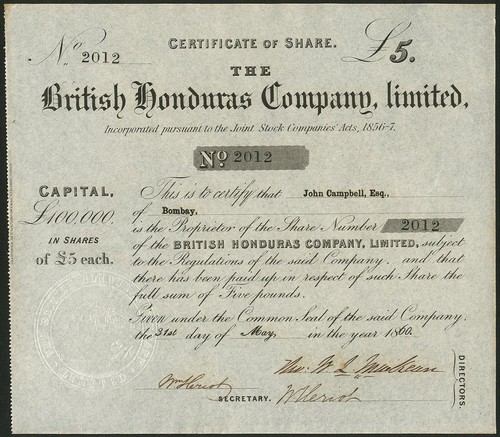 No. 2012
CERTIFICATE OF SHARE.
£5.
THE
British Honduras Company, limited,
Incorporated pursuant to the Joint Stock Companies' Acts, 1856-7.
No 2012
CAPITAL,
£100,000.
IN SHARES
of £5 each.
This is to certify that John Campbell, Esq.,
of Bombay,
is the Proprietor of the Share Number 2012
of the BRITISH HONDURAS COMPANY, LIMITED, subject
to the Regulations of the said Company, and that
there has been paid up in respect of such Share the
full sum of Five pounds.
Given under the Common Seal of the said Company,
the 31st day of May, in the year 1860.
Wm Heriot
SECRETARY.
W Heriot
DIRECTORS.